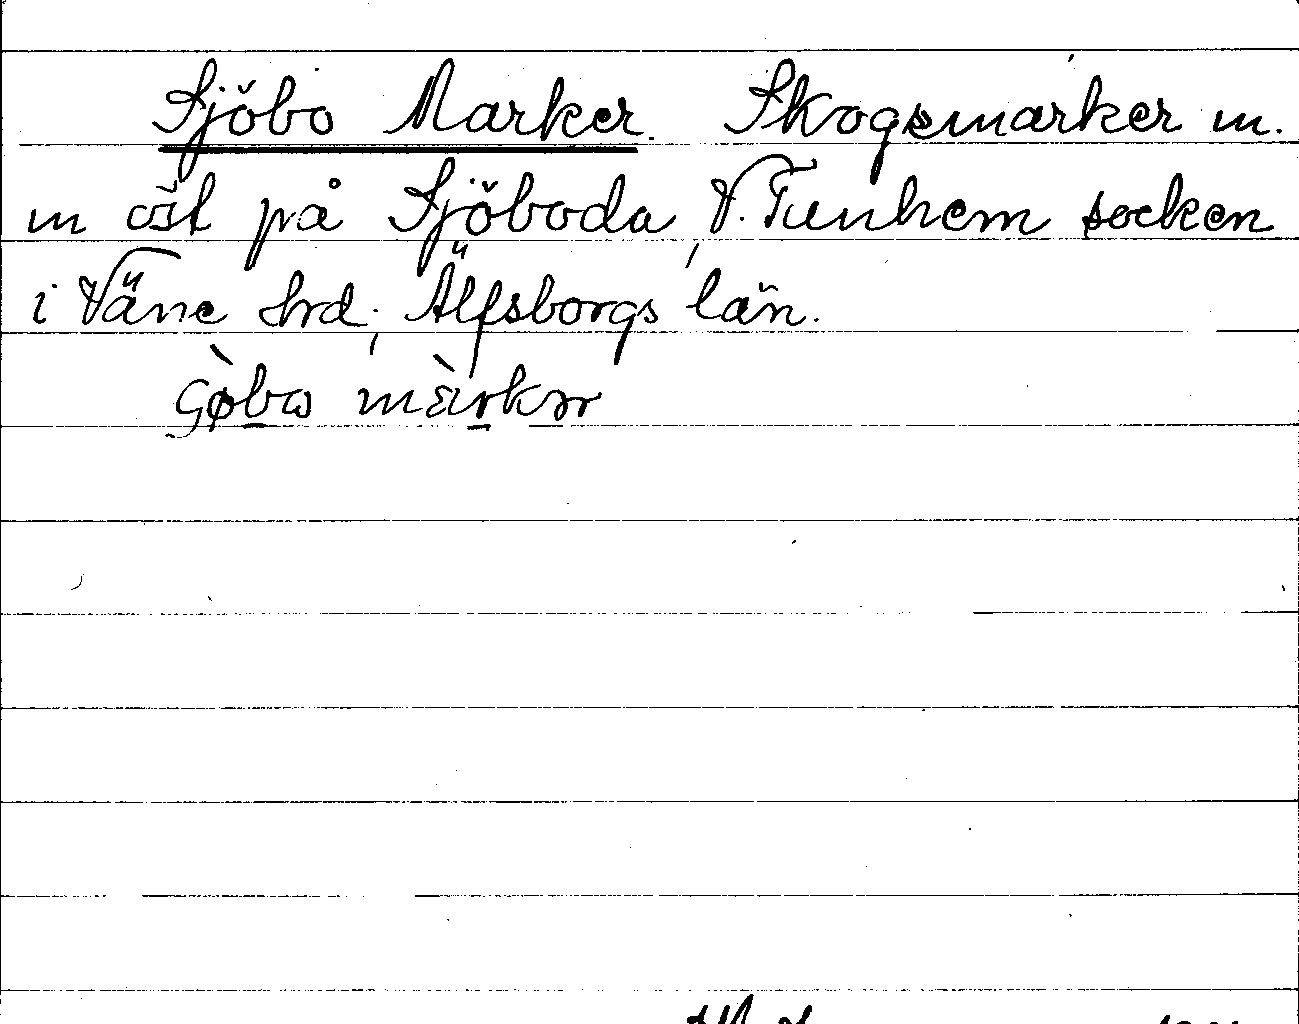 Sjöbo Marker. Skogsmarker m.
m öst på Sjöboda, V. Tunhem socken
i Väne hrd; Älfsborgs län.